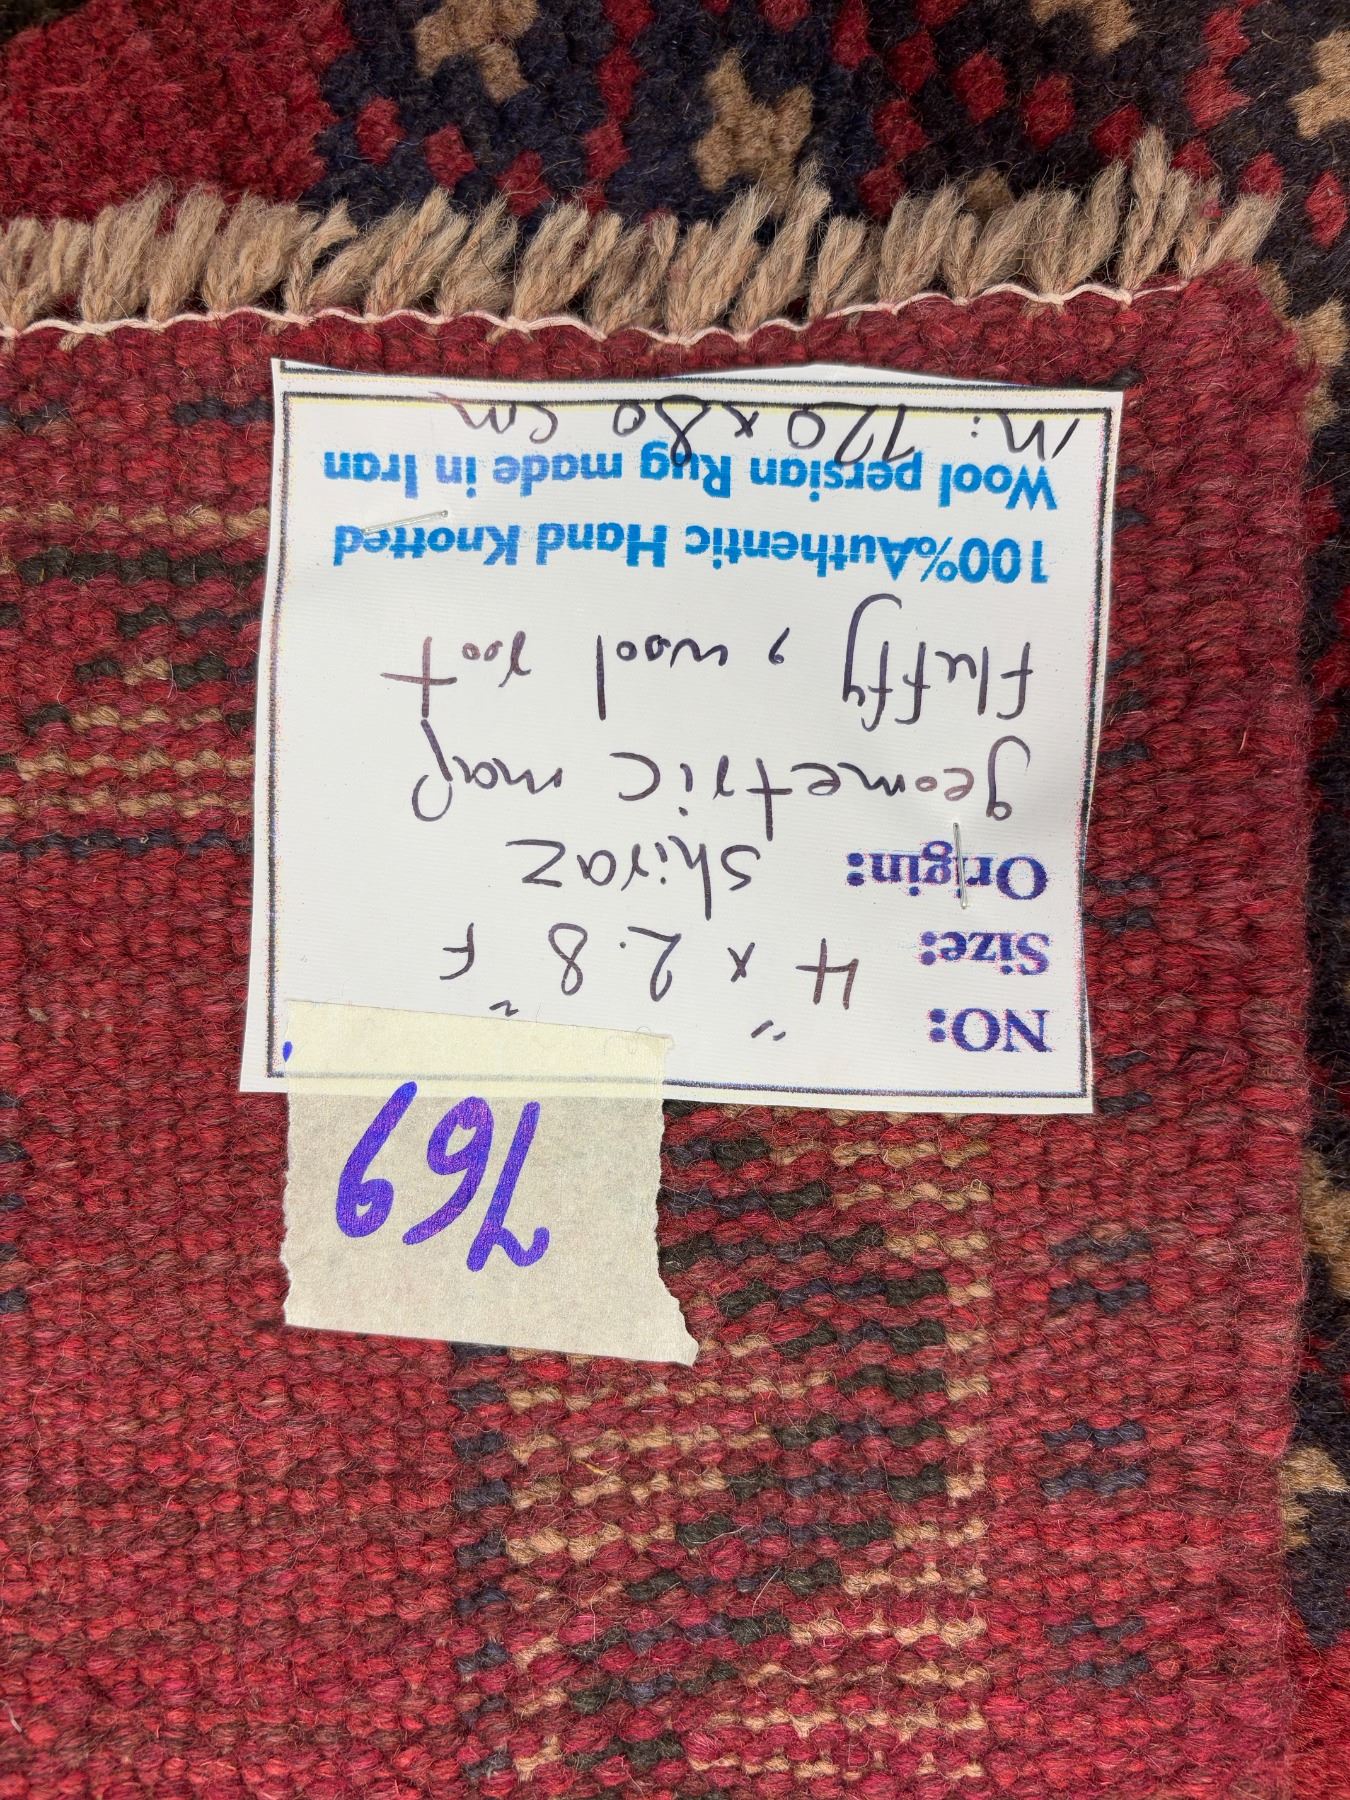 769
NO:
Size: 4" x 2.8" F
Origin: Shiraz
geometric map
fluffy , wool root
100%Authentic Hand Knotted
Wool persian Rug made in Iran
120 x 80 cm